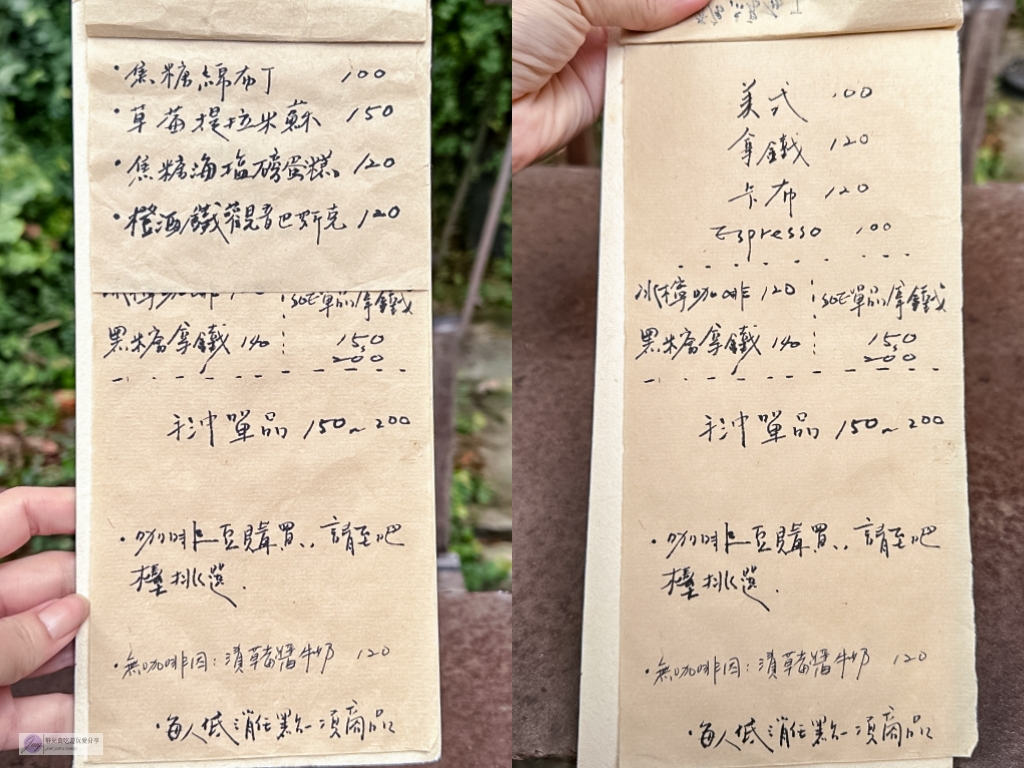 ·焦糖綿布丁 100
·草莓提拉米蘇 150
·焦糖海塩磅蛋糕 120
·橙酒鐵觀音巴斯克 120
冰檸咖啡 120
SOE單品拿鐵
黑糖拿鐵 140
150
200
手沖單品 150~200
·咖啡豆購買..請至吧
檯挑選.
·無咖啡因:漬草莓醬牛奶 120
·每人低消任點一項商品
野兒貪吃遊玩愛分享
美式 100
拿鐵 120
卡布 120
Espresso 100
冰檸咖啡 120
SOE單品拿鐵
黑糖拿鐵 140
150
200
手沖單品 150~200
·咖啡豆購買..請至吧
檯挑選.
·無咖啡因:漬草莓醬牛奶 120
·每人低消任點一項商品